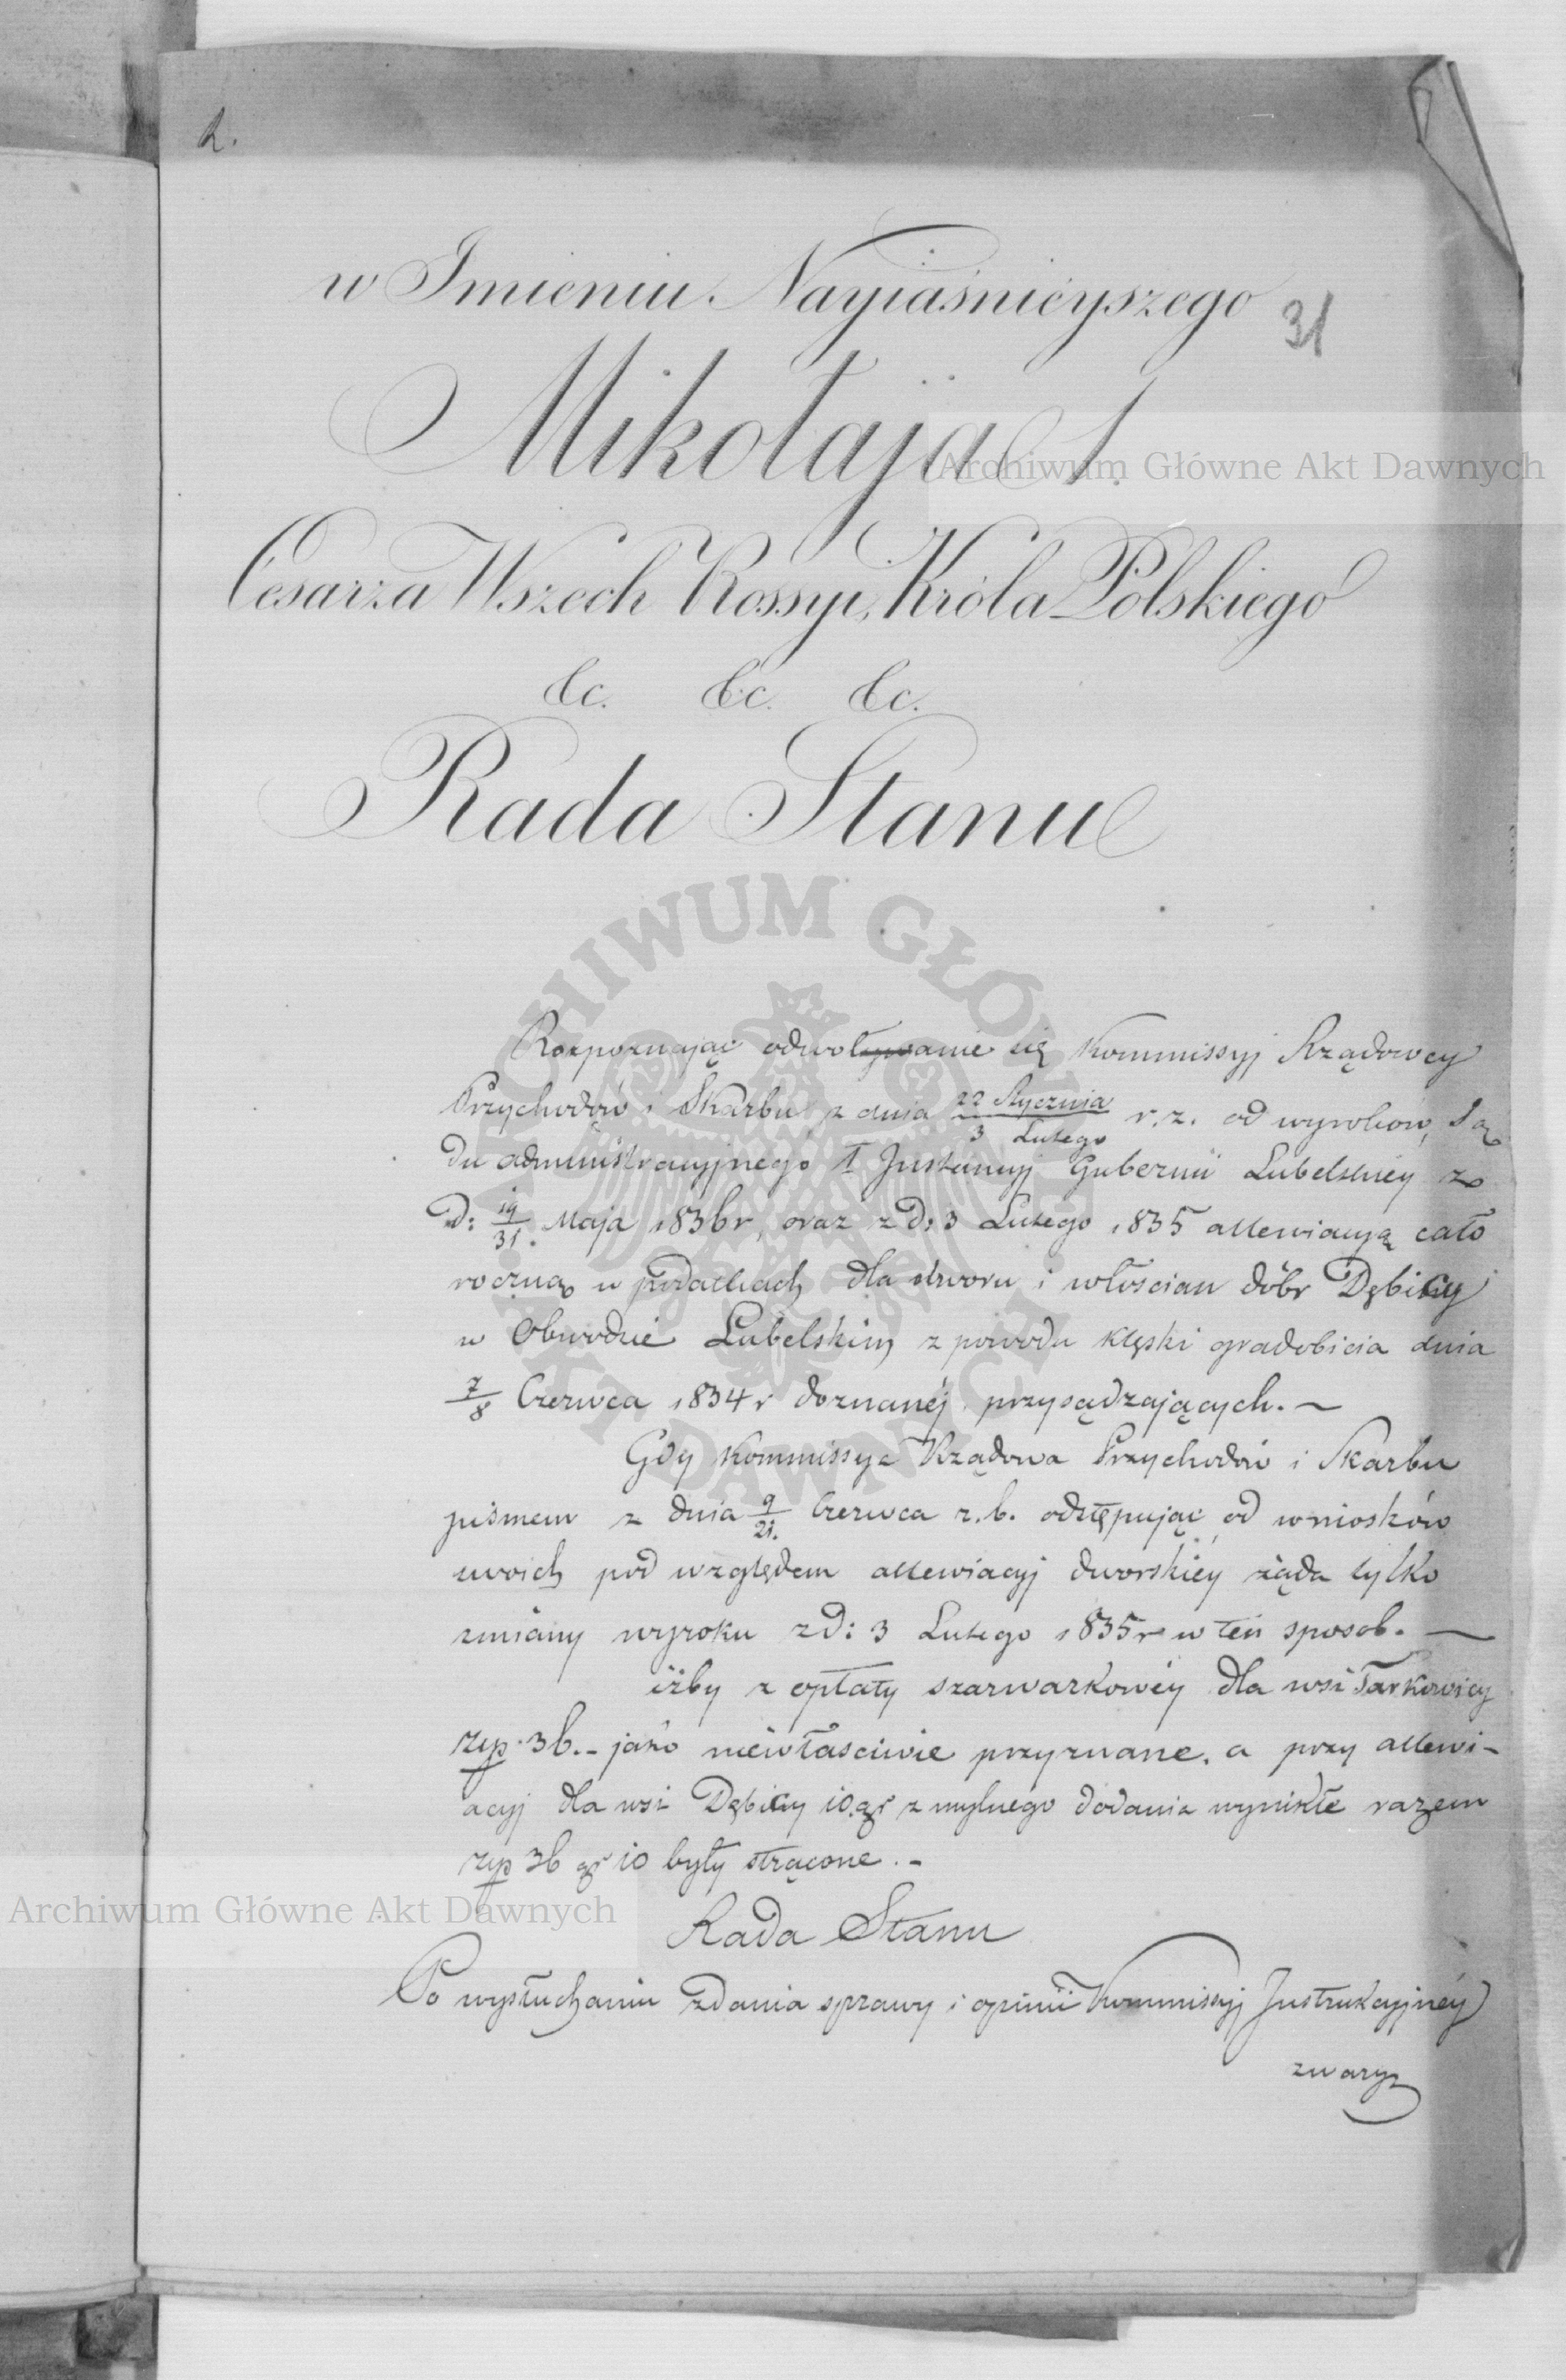 2.
w Imieniu Nayiaśnieyszego
31
Mikołaja I.
Cesarza Wszech Rossyi, Króla Polskiego
&c. &c. &c.
Rada Stanu
Rozpoznając odwołanie się Kommissyj Rządowey
Przychodów i Skarbu z dnia 22 Stycznia / 3 Lutego r. z. od wyroków Są
du administracyjnego I Instancyj Gubernii Lubelskiey z
D: 19/31. Maja 1836 r, oraz z D: 3 Lutego 1835 allewiacyą cało
roczną w podatkach dla dworu i włościan dóbr Dębicy
w Obwodzie Lubelskim z powodu klęski gradobicia dnia
7/8 Czerwca 1834 r doznanéj przysądzających. —
Gdy Kommissya Rządowa Przychodów i Skarbu
pismem z dnia 9/21. Czerwca r. b. odstępując od wniosków
swoich pod względem allewiacyj dworskiéy żąda tylko
zmiany wyroku z D: 3 Lutego 1835 r w ten sposob. —
iżby z opłaty szarwarkowéy dla wsi Tarkawicy
złp. 36. - jako niewłaściwie przyznane, a przy allewi-
acyj dla wsi Dębicy 10. gr z mylnego dodania wynikłe razem
złp 36 gr 10 były strącone. -
Rada Stanu
Po wysłuchaniu zdania sprawy i opinii Kommissyj Instrukcyjnéy
zwary
Archiwum Główne Akt Dawnych
Archiwum Główne Akt Dawnych
ARCHIWUM GŁÓWNE AKT DAWNYCH